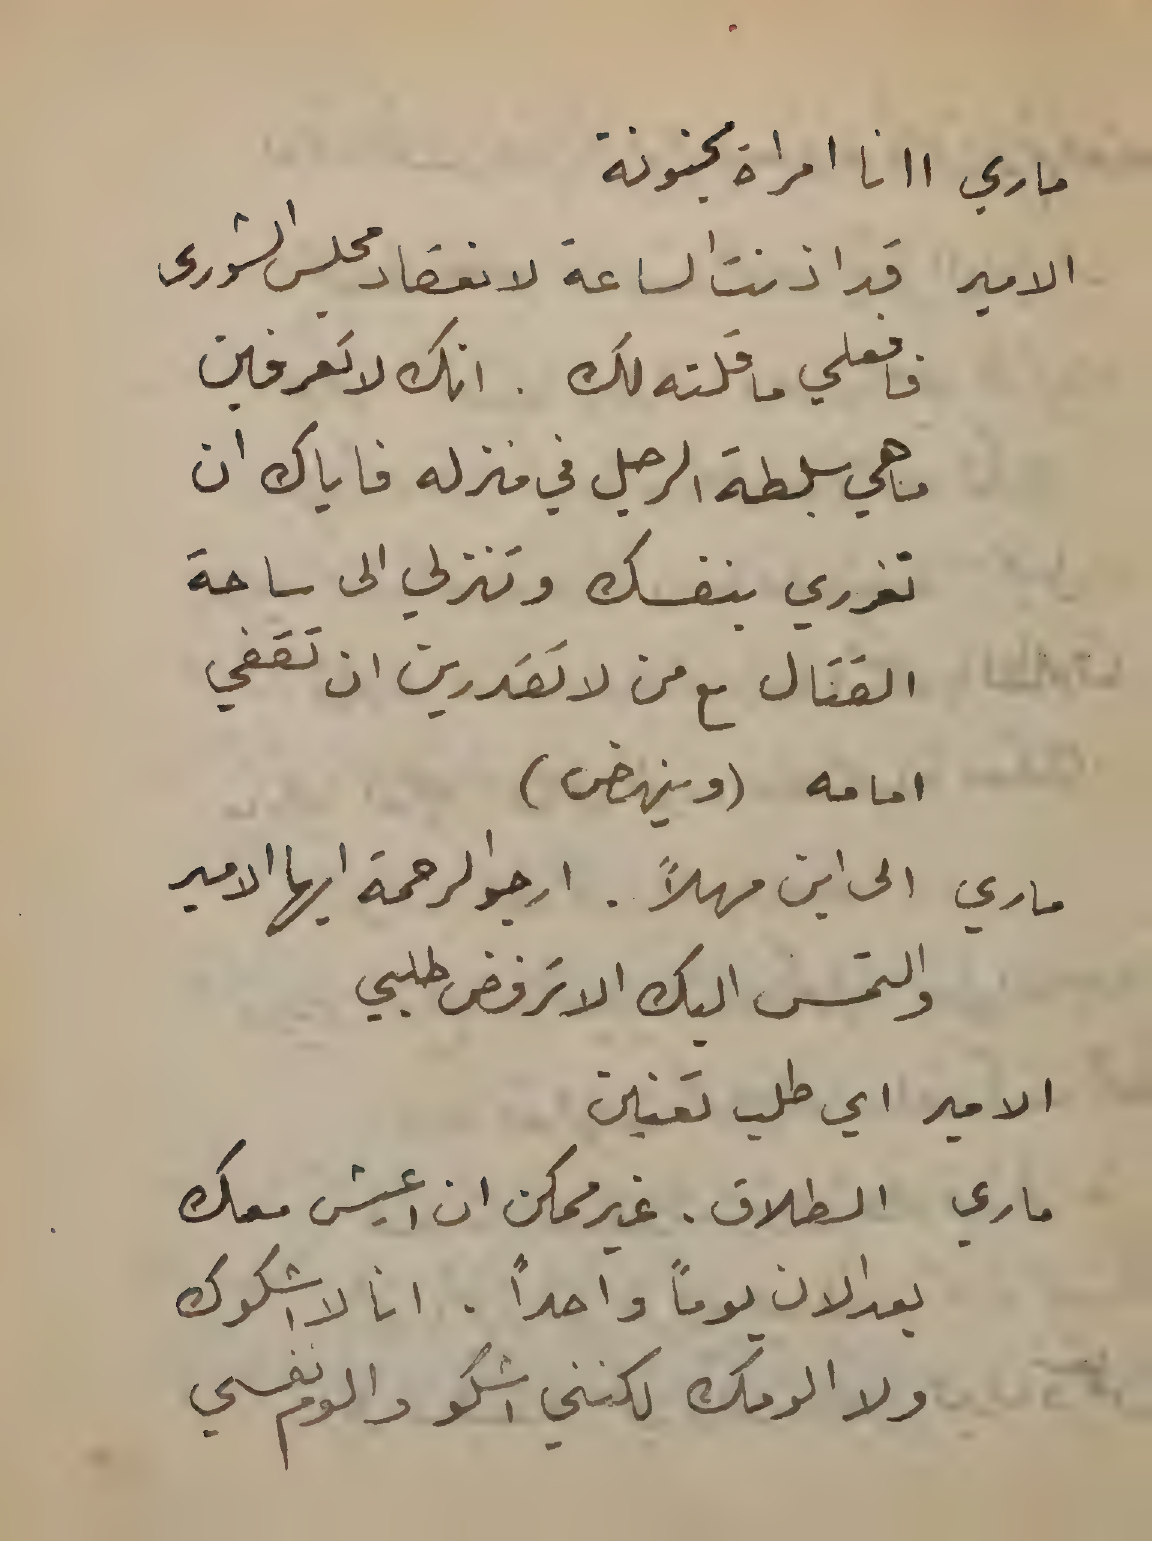 ماري اانا امراة مجنونة
الامير قد اذنت الساعة لانعقاد مجلس الشورى
فافعلي ما قلته لك . انك لا تعرفين
ما هي سلطة الرجل في منزله فاياك ان
تغرري بنفسك وتنزلي الى ساحة
القتال مع من لا تقدرين ان تقفي
امامه (وينهض)
ماري الى اين مهلاً . ارجو الرحمة ايها الامير
والتمس اليك الا ترفض طلبي
الامير اي طلب تعنين
ماري الطلاق . غير ممكن ان اعيش معك
بعد الان يوماً واحداً . انا لا اشكوك
ولا الومك لكنني اشكو والوم نفسي